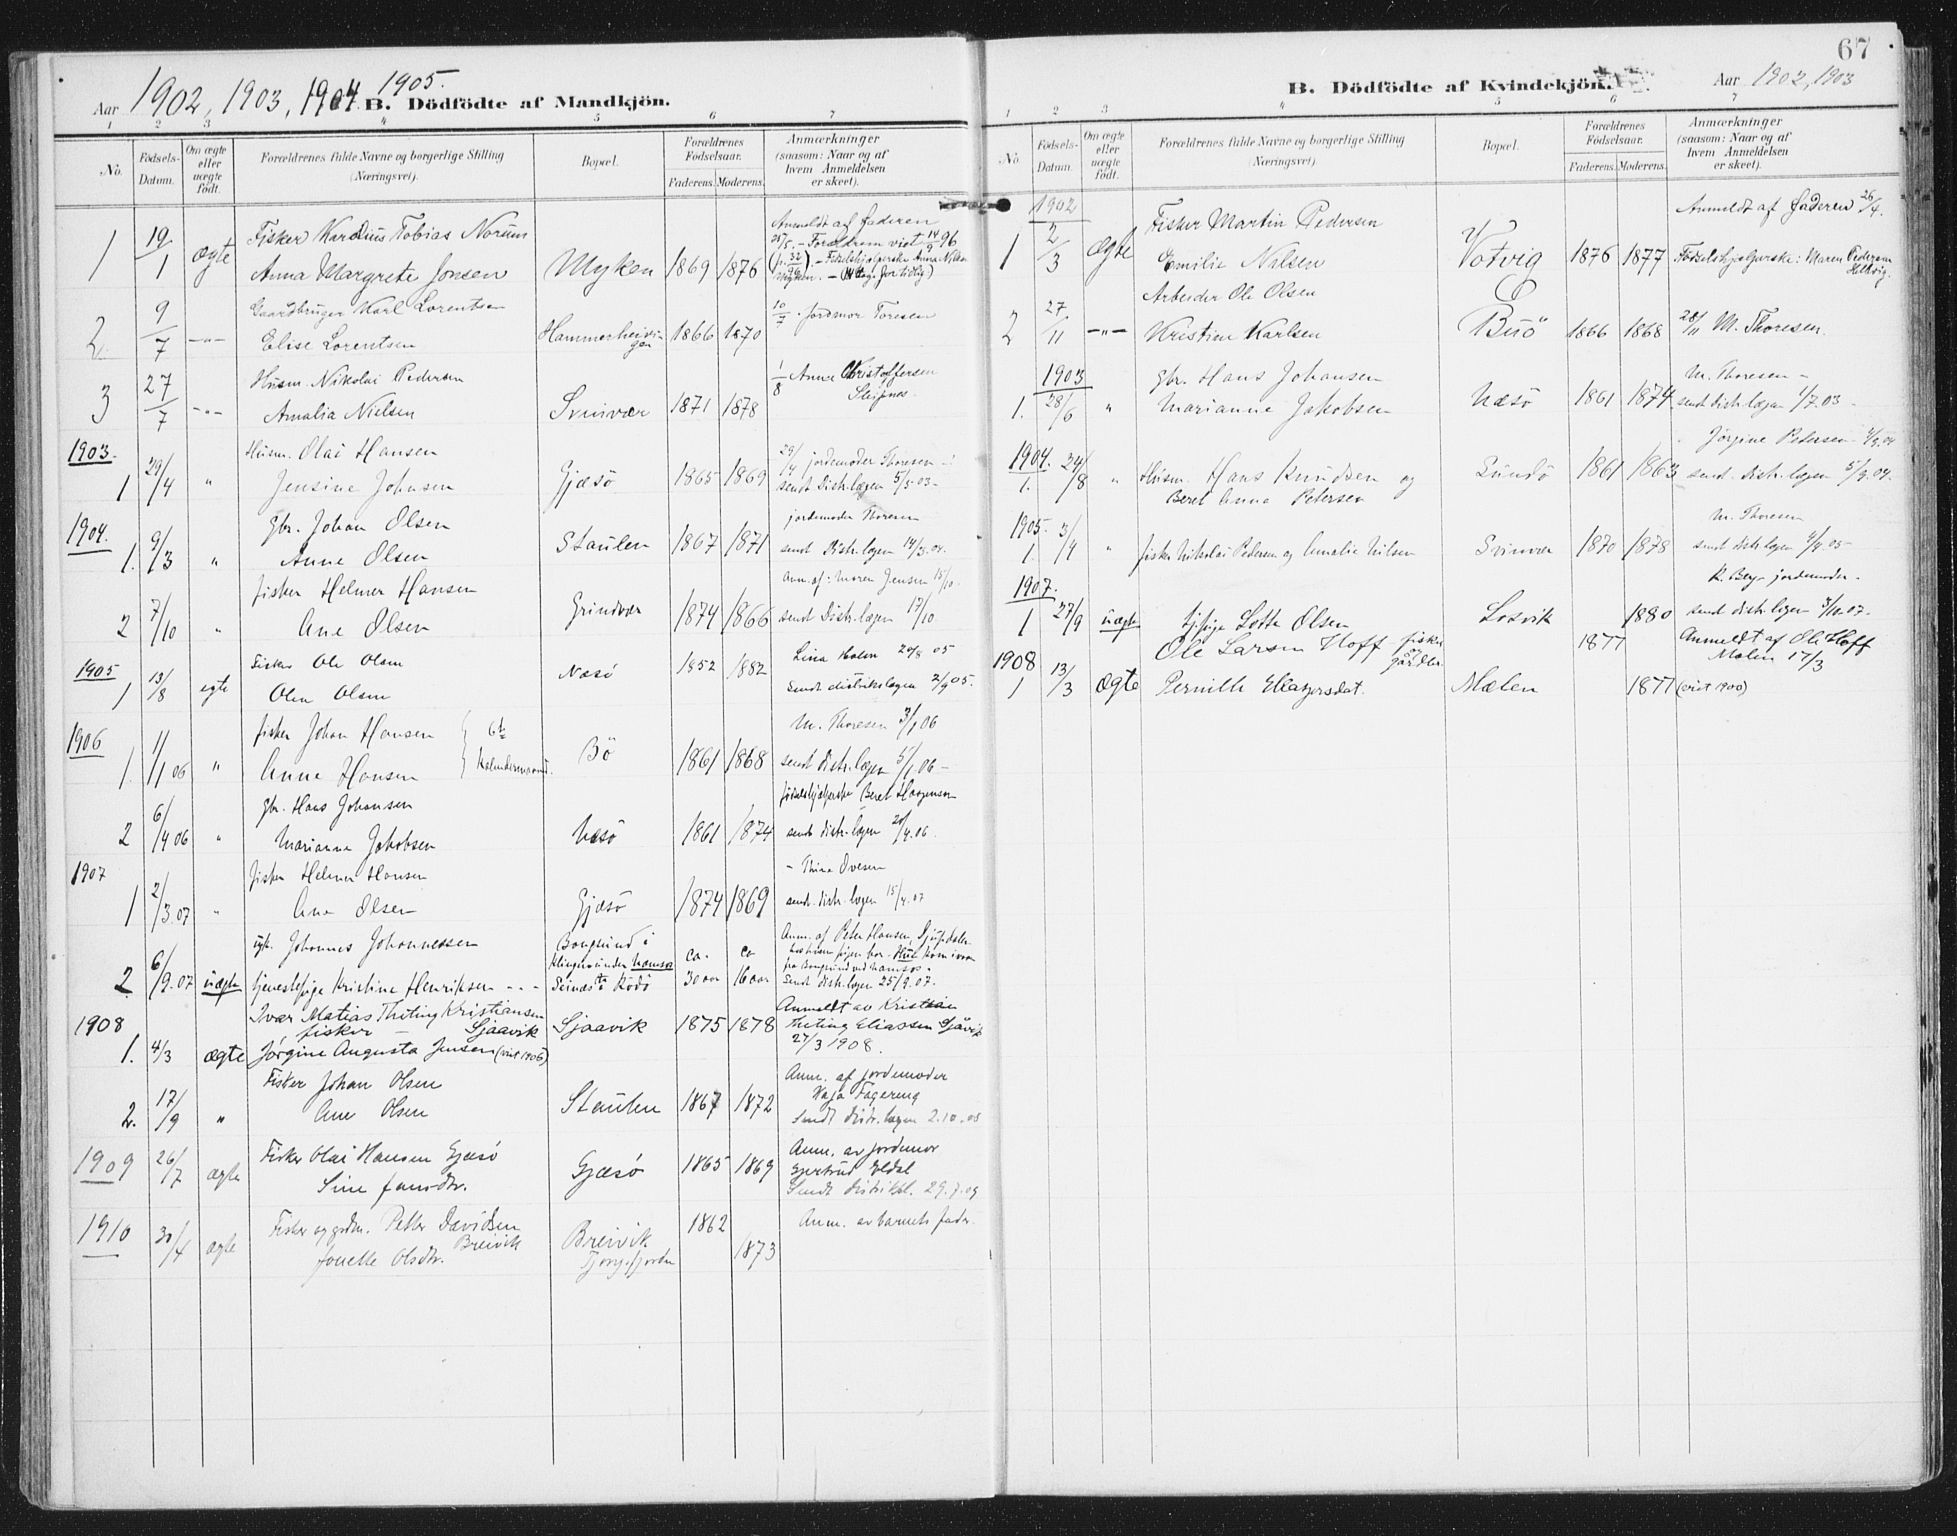 Aar 1902, 1903, 1904. 1905.
B. Dödfödte af Mandkjön.
1 2 3 4 5 6 7
No. Födsels-Datum. Om ægte eller uægte födt. Forældrenes fulde Navne og borgerlige Stilling (Næringsvei). Bopæl. Forældrenes Födselsaar. Faderens. Moderens. Anmærkninger (saasom: Naar og af hvem Anmeldelsen er skeet).
1 19/1 ægte Fisker Tobias Norum Myken 1869 1876 Anmeldt af Faderen
Anna Margrete Jonsen
2 9/7 -"- Gaardbruger Karl Lorentsen 1866 1870 10/7 Jordmor Toresen
Elise Lorentsen
3 27/7 -"- Husm. Nikolai Pedersen Svinvær 1871 1878 1/8 Anna Kristoffersen
Amalia Nielsen
1903.
1 29/4 " Husm. Olai Hansen Gjæsö 1865 1869 jordemoder Thoresen
Jensine Johnsen sendt Distr.lægen 5/5-03-
1904.
1. 9/3 " Gbr. Johan Olsen Staulen 1867 1871 jordemoder Thoresen
Anne Olsen sendt Distr.lægen 14/3.04.
2 7/10 " fisker Helmer Hansen Grindvær 1874 1866 Anm. af: Maren Jensen 15/10.
Ane Olsen sendt Distr.lægen 17/10
1905
1 13/8 egte Fisker Ole Olsen Næsö 1852 1882 Lina Holen 20/8 05
Olea Olsen Sendt distriktslægen 2/9 05.
1906
1. 1/1 06 " fisker Johan Hansen Bö 1861 1868 M. Thoresen 3/1 06
Anne Hansen sendt Distr.lægen 5/1 06-
2 6/4 06 " Gbr. Hans Johansen Næsö 1861 1874 födselshjælperske Beret
Marianne Jakobsen sendt distr.lægen 20/4.06.
1907
1 2/3.07 " fisker Helmer Hansen Gjæsö 1874 1869 - Thina Ovesen
Ane Olsen sendt distr.lægen 15/4.07
2 6/9.07 uægte ugk. Johannes Johannessen ca. 30 aar ca 16 aar Anm. af Peter Hansen
tjenestepige Kristine Henriksen Rödö Sendt distr.lægen 25/9.07.
1908
1. 4/3 ægte Ivar Matias Theting Kristiansen Sjaavik 1875 1878 Anmeldt av Kristian
fisker - Sjaavik Theting Eliassen Sjåvik
Jörgine Augusta Jensen (viet 1906) 27/3 1908.
2. 17/9 " Fisker Johan Olsen Staulen 1867 1872 Anm. af jordemoder
Ane Olsen Kaja Fagereng
Sendt distr.lægen 2.10.08
1909 26/7 ægte Fisker Olai Hansen Gjæsö Gjæsö 1865 1869 Anm. av jordemor
Sine Jensdtr. Gjertrud Eldal
Sendt distriktsl. 29.7.09
1910 30/4 ægte Fisker og grdm. Petter Davidsen Breivik Breivik 1862 1873 Anm. av barnets fader.
Jonette Olsdtr.
67
B. Dödfödte af Kvindekjön.
Aar 1902, 1903
1 2 3 4 5 6 7
No. Födsels-Datum. Om ægte eller uægte födt. Forældrenes fulde Navne og borgerlige Stilling (Næringsvei). Bopæl. Forældrenes Födselsaar. Faderens. Moderens. Anmærkninger (saasom: Naar og af hvem Anmeldelsen er skeet).
1902
1 2/3 Ægte Fisker Martin Pedersen Votvig 1876 1877 Anmeldt af Faderen 26/4.
Emilie Nilsen Födselshjælperske: Maren Pedersen
2 27/11 -"- Arbeider Ole Olsen Buö 1866 1868 28/11 M. Thoresen.
Kristine Karlsen
1903
1. 28/6 " Gbr. Hans Johansen Næsö 1861 1874 M. Thoresen -
Marianne Jakobsen sendt distr.lægen 1/7.03-
1904.
1. 24/8 " Husm. Hans Knudsen og Sundö 1861 1863 Jörgine Petersen
Beret Anna Petersen sendt distr.lægen 5/9.04.
1905.
1. 3/4 " fisker Nikolai Pedersen og Amalie Nilsen Svinvær 1870 1878 M. Thoresen
sendt distr.lægen
1907.
1 27/9 uægte Lotte Olsen 1880 K. Berg jordemoder.
sendt distr.lægen 3/10.07.
1908
1 13/3 Ægte Ole Larsen Hoff fisker og gårdbr. Mælen 1877 1877 Anmeldt af Ole Hoff
Pernille Eliasersdat. Mælen 17/3
(viet 1900)